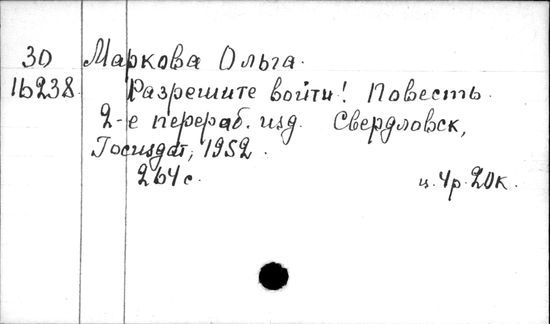 30 Маркова Ольга.
16238 Разрешите войти! Повесть.
2-е перераб. изд. Свердловск,
Госиздат, 1952.
264 с. ц. 4 р. 20 к.